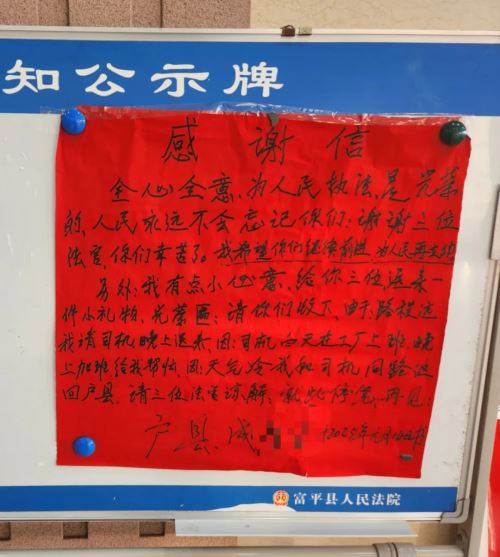 知公示牌
感谢信
全心全意,为人民执法,是光荣
的,人民永远不会忘记你们:谢谢三位
法官,你们幸苦了。我希望你们继续前进,为人民再立功
另外:我有点小心意,给你三位送来一
件小礼物,光荣匾:请你们收下,由于:路程远
我请司机晚上送来,因:司机白天在工厂上班,晚
上加班给我帮忙,因:天气冷我和司机同路返
回户县,请三位法官谅解:就此停笔,再见:
户县 成
2025年元月
富平县人民法院